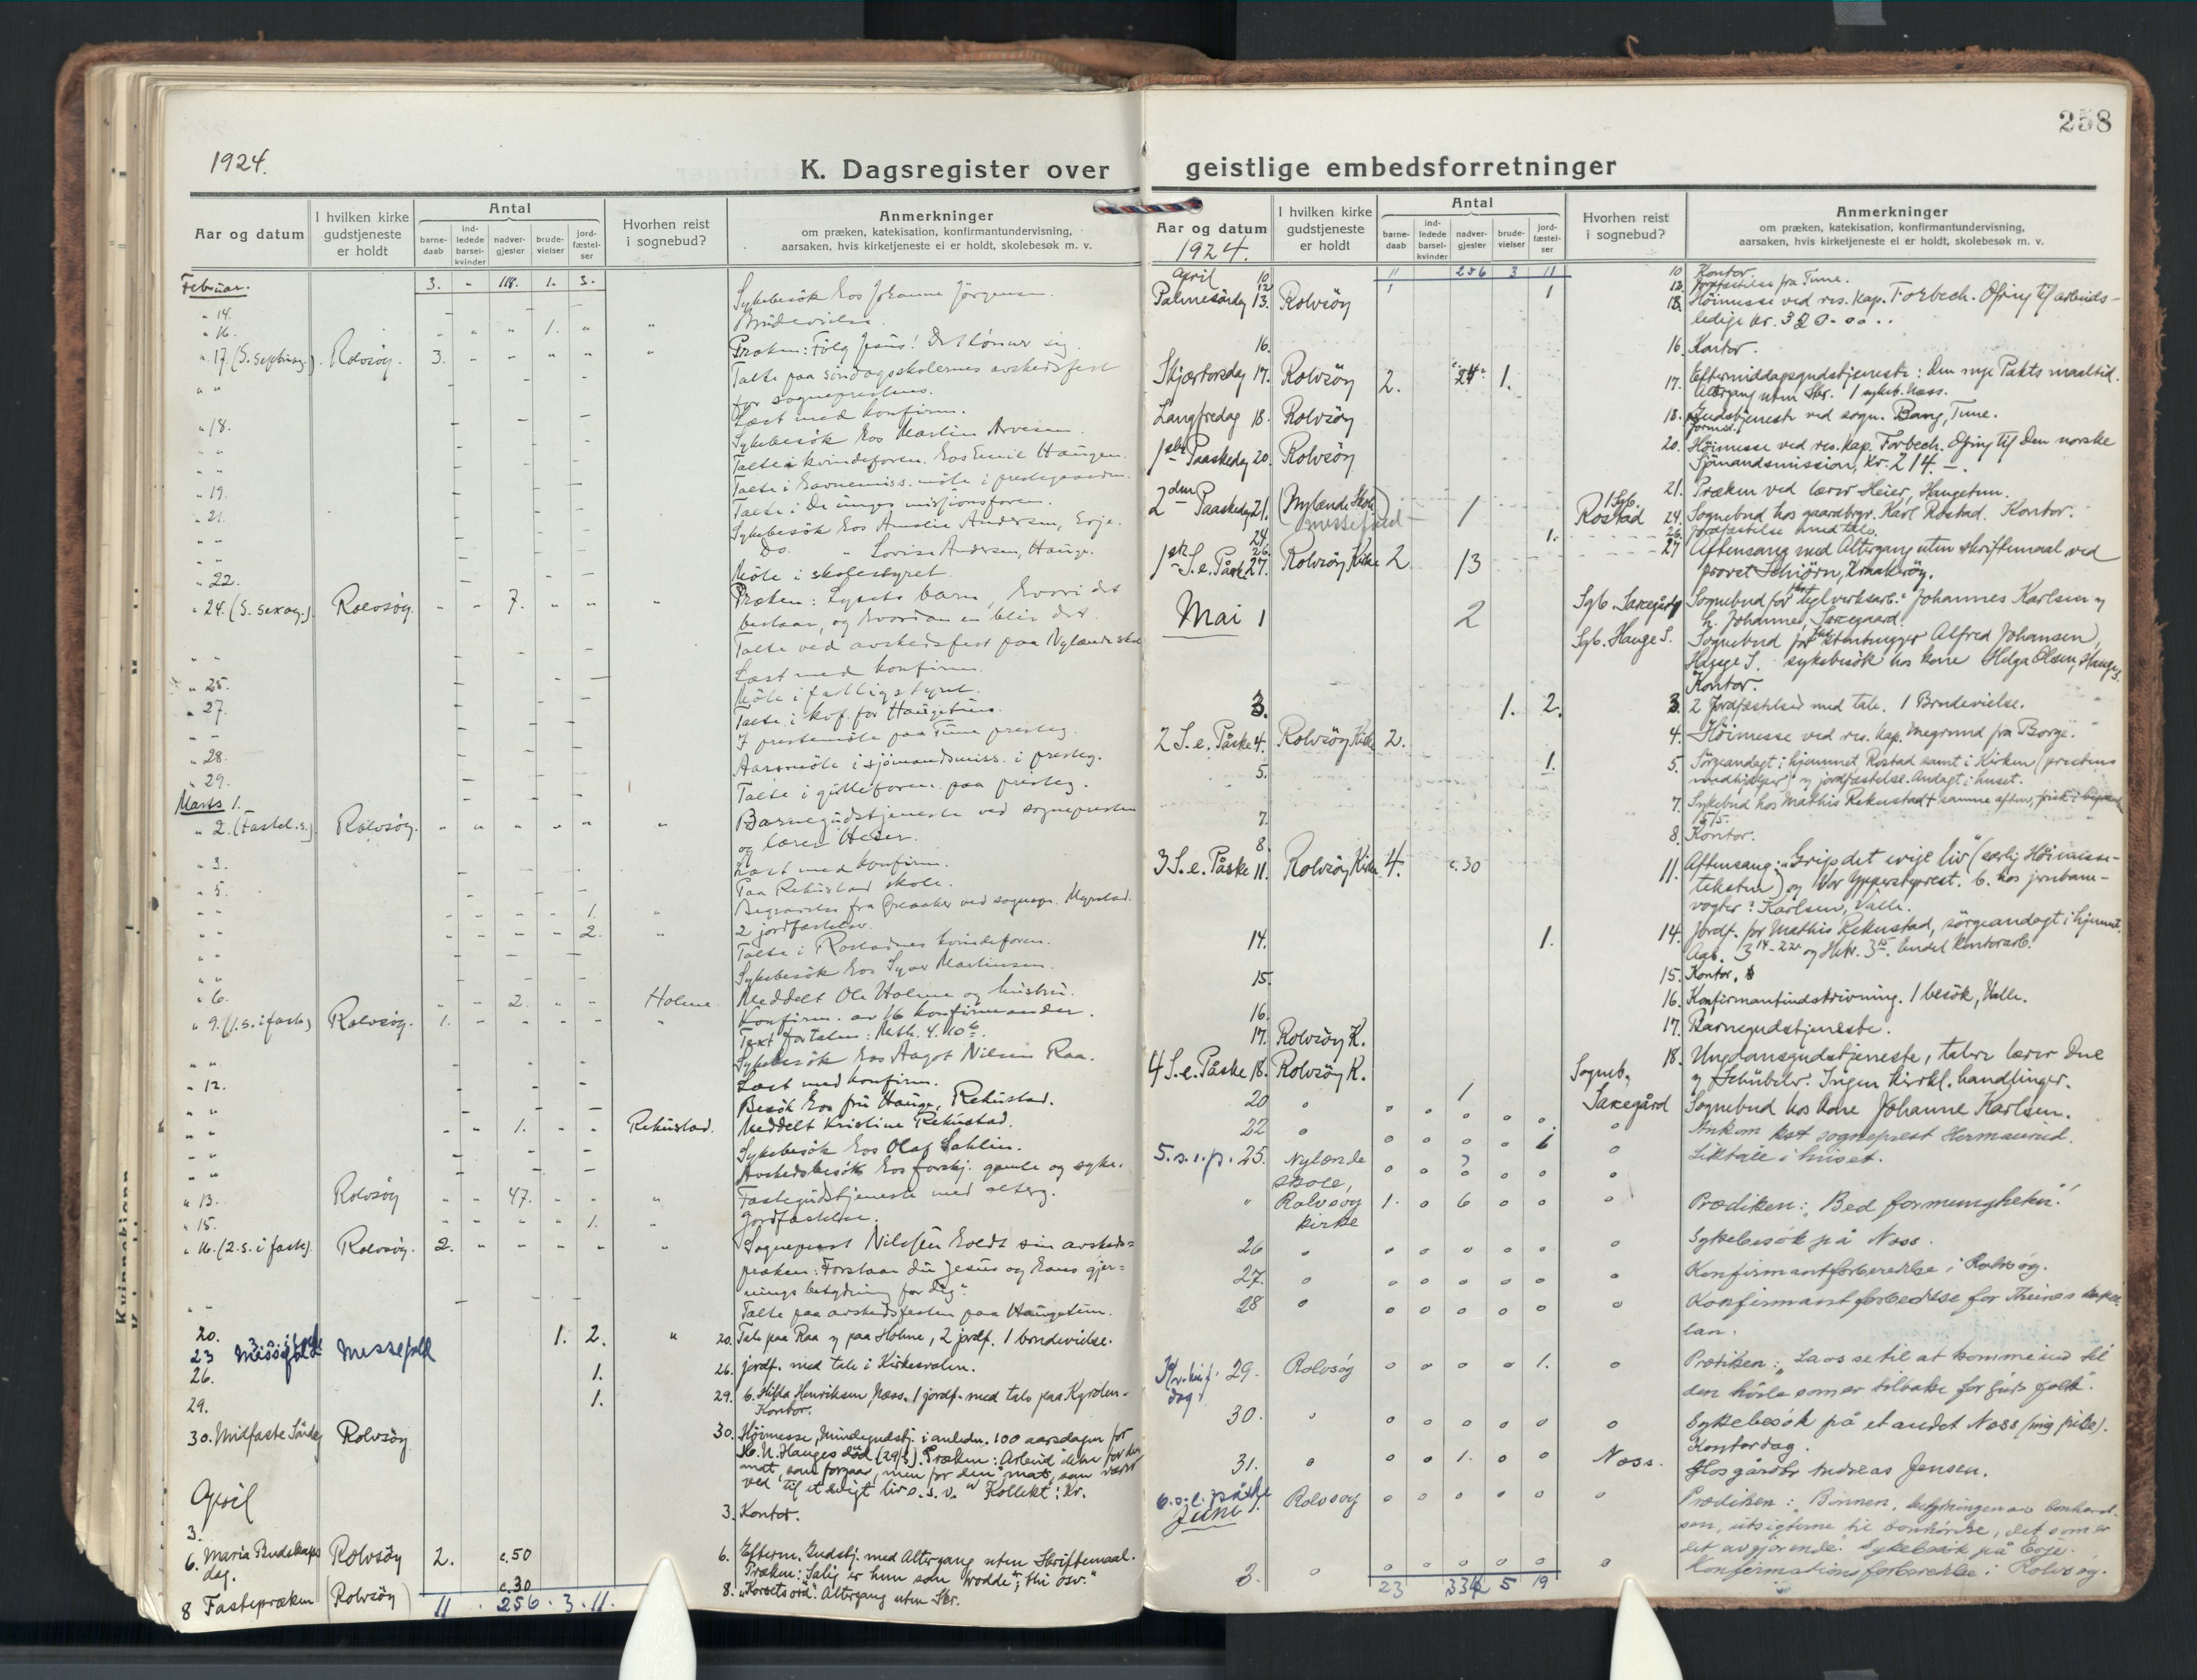 1924.
K. Dagsregister over
Aar og datum
I hvilken kirke
gudstjeneste
er holdt
Antal
barne-
daab
ind-
ledede
barsel-
kvinder
nadver-
gjester
brude-
vielser
jord-
fæstel-
ser
Hvorhen reist
i sognebud?
Anmerkninger
om præken, katekisation, konfirmantundervisning,
aarsaken, hvis kirketjeneste ei er holdt, skolebesøk m. v.
Februar. 3. " 118. 1. 3.
" 14. Sykebesök hos Johanne Jörgensen.
" 16. " " " 1. " " Brudevielse.
" 17. (S. Septuag.). Rolvsöy. 3. " " " " " Præken: Fölg Jesus! Det lönner sig.
" " Talte paa söndagsskolernes avskedsfest
for sogneprestens.
" 18. Læst med konfirm.
" " Sykebesök hos Martin Arvesen.
" " Talte i kvindeforen. hos Emil Haugen.
" 19. Talte i havnemiss. möte i prestegaarden.
" 21. Talte i De unges missjonsforen.
" " Sykebesök hos Amalie Andersen, Evje.
" " Do. " Lovise Andersen, Hauge.
" 22. Möte i skolestyret.
" 24. (S. Sexag.). Rolvsöy. " " 7. " " " Præken: Lysets barn, hvori det
bestaar, og hvordan en blir det.
" " Talte ved avskedsfest paa Nylænde skole
" 25. Læst med konfirm.
" 27. Möte i fattigstyret.
" " Talte i kvf. for Haugetun.
" 28. I prestemöte paa Tune presteg.
" 29. Aarsmöte i sjömandsmiss. i presteg.
Marts 1. Talte i gutteforen. paa presteg.
" 2. (Fastel. s.). Rolvsöy. " " " " " " Barnegudstjeneste ved sognepresten
og lærer Heier.
" 3. Læst med konfirm.
" 5. Paa Rekustad skole.
" " 1. " Begravelse fra Greaaker ved sognepr.
" " 2. " 2 jordfæstelser.
" " Talte i Rostadnes kvindeforen.
" " Sykebesök hos Syver Martinsen.
" 6. " " 2. " " Holme Meddelt Ole Holme og hustru.
" 9. (1. s. i faste) Rolvsöy. 1. " " " " " Konfirm. av 16 konfirmander.
Text for talen: Mtth. 4. 10 b.
" " Sykebesök hos Aagot Nilsen Raa.
" 12. Læst med konfirm.
" " Besök hos fru Hauge, Rekustad.
" " " " 1. " " Rekustad. Meddelt Kristine Rekustad.
" " Sykebesök hos Olaf Sahlin.
" " Avskedsbesök hos forskj. gamle og syke.
" 13. Rolvsöy " " 47. " " " Fastegudstjeneste med alterg.
" 15. " " " " 1. " Jordfæstelse.
" 16. (2. s. i faste). Rolvsöy. 2. " " " " " Sogneprest Nilssen holdt sin avskeds=
præken: Forstaar du Jesus og hans gjer=
nings betydning for dig?
" " Talte paa avskedsfesten paa Haugetun.
20. 1. 2. " 20. Tale paa Raa og paa Holme, 2 jordf. 1 brudevielse.
23 Messefald Messefald
26. 1. 26. jordf. med tale i Kirkesvalen.
29. 1. 29. b. Hilda Henriksen Næss. 1 jordf. med tale paa Kyrölen.
Kontor.
30. Midfaste Söndag Rolvsöy 30. Höimesse, Mindegudstj. i anledn. 100 aarsdagen for
H. N. Hauges död (29/3). Præken: Arbeid ikke for den
mat, som forgaar, men for den mat, som varer
ved til et evigt liv o. s. v. Kollekt: Kr.
April
3. 3. Kontor.
6. Maria Budskaps dag. Rolvsöy 2. c. 50 6. Efterm. Gudstj. med Altergang uten Skriftemaal.
Præken: Salig er hun som trodde osv."
8 Fastepræken (Rolvsöy) c. 30 8. "Korsets ord". Altergang uten Skr.
11 . 256 . 3 . 11.
258
geistlige embedsforretninger
Aar og datum
1924.
I hvilken kirke
gudstjeneste
er holdt
Antal
barne-
daab
ind-
ledede
barsel-
kvinder
nadver-
gjester
brude-
vielser
jord-
fæstel-
ser
Hvorhen reist
i sognebud?
Anmerkninger
om præken, katekisation, konfirmantundervisning,
aarsaken, hvis kirketjeneste ei er holdt, skolebesøk m. v.
11 256 3 11
April 10 10 Kontor.
12 1 1 12 Jordfæstelse fra Tune.
Palmesöndag 13. Rolvsöy 13 Höimesse ved res. kap. Forbech. Ofring til arbeids-
ledige kr. 320.00..
16. 16. Kontor.
Skjærtorsdag 17. Rolvsöy 2. 24 1. 17. Eftermiddagsgudstjeneste: Den nye Pakts maaltid.
Altergang uten Skr. 1 sykeb. Næss.
Langfredag 18. Rolvsöy 18. Gudstjeneste ved sogn. Bang, Tune.
1ste Paaskedag 20. Rolvsöy 20. Höimesse ved res. kap. Forbech. Ofring til Den norske
Sjömandsmission, kr. 214.–.
2den Paaskedag 21. (Nylænde Skole) messefald 21. Præken ved lærer Heier, Haugetun.
24. 1 1 Sgb. Rostad 24. Sognebud hos gaardbrgr. Karl Rostad. Kontor.
26. 1. 26. Jordfæstelse med tale.
1ste S. e. Påske 27. Rolvsöy Kirke 2 13 27 Aftensang med Altergang uten skriftemaal ved
provst Schiörn, Kraakeröy.
Mai 1 2 Sgb. Saxegård Sognebud for teglverksarb. Johannes Karlsen og
h. Johanne, Saxegaard
Sgb. Hauge S. Sognebud for stenhugger Alfred Johansen,
Hauge S. sykebesök hos kone Helga Olsen, Hauge S.
Kontor.
3. 1. 2. 3. 2 Jordfæstelser med tale. 1 Brudevielse.
2 S. e. Påske 4. Rolvsöy Kirke 2. 4. Höimesse ved res. kap. Megrund fra Borge.
5. 1. 5. Sörgeandagt i hjemmet Rostad samt i Kirken (prestens
medhjelper) og jordfæstelse. Andagt i huset.
7. 7. Sykebud hos Mathis Rekustad † samme aften,
8. 8. Kontor.
3 S. e. Påske 11. Rolvsöy Kirke 4. c. 30 11. Aftensang: "Grip det evige liv" (særlig Höimesse-
teksten) og Vor Ypperstyprest. b. hos jernbane-
vogter Karlsen, Valle.
14. 1. 14. Jordf. for Mathis Rekustad, sörgeandagt i hjemmet.
15. 15. Kontor.
16. 16. Konfirmantindskrivning. 1 besök, Valle.
17. Rolvsöy K. 17. Barnegudstjeneste.
4 S. e. Påske 18. Rolvsöy K. 18. Ungdomsgudstjeneste, talere lærer Due
og Schübeler. Ingen kirkl. handlinger.
20 " 1 Sogneb. Saxegård Sognebud hos kone Johanne Karlsen.
22 " Ankom kst sogneprest Hermanrud.
1 Liktale i huset.
5. s. e. p. 25. Nylænde
skole,
" Rolvsöy
kirke 1. 0 6 0 0 0 Prædiken: "Bed for menigheten!"
26 " 0 0 0 0 0 0 Sykebesök på Næss.
27. " 0 0 0 0 0 0 Konfirmantforberedelse i Rolvsöy.
28 " 0 0 0 0 0 0 Konfirmantforberedelse for Tune
lan.
Kr. himf. dag. 29. Rolvsöy 0 0 0 0 1. 0 Prædiken: "La os se til at komme ind til
den hvile som er tilbake for Guds folk".
30. " 0 0 0 0 0 0 Sykebesök på et andet Næss
Kontordag.
31. " 0 0 1. 0 0 Næss. Hos gårdbr Andreas Jensen.
6. s. e. påske
Juni 1. Rolvsöy 0 0 0 0 0 0 Prædiken: Bönnen, betydningen av bönhörel-
sen, utsigterne til bönhörelse, det som er
det avgjörende. Sykebesök på Evje.
3. " 0 0 0 0 0 0 Konfirmationsforberedelse i Rolvsöy.
23 334 5 19